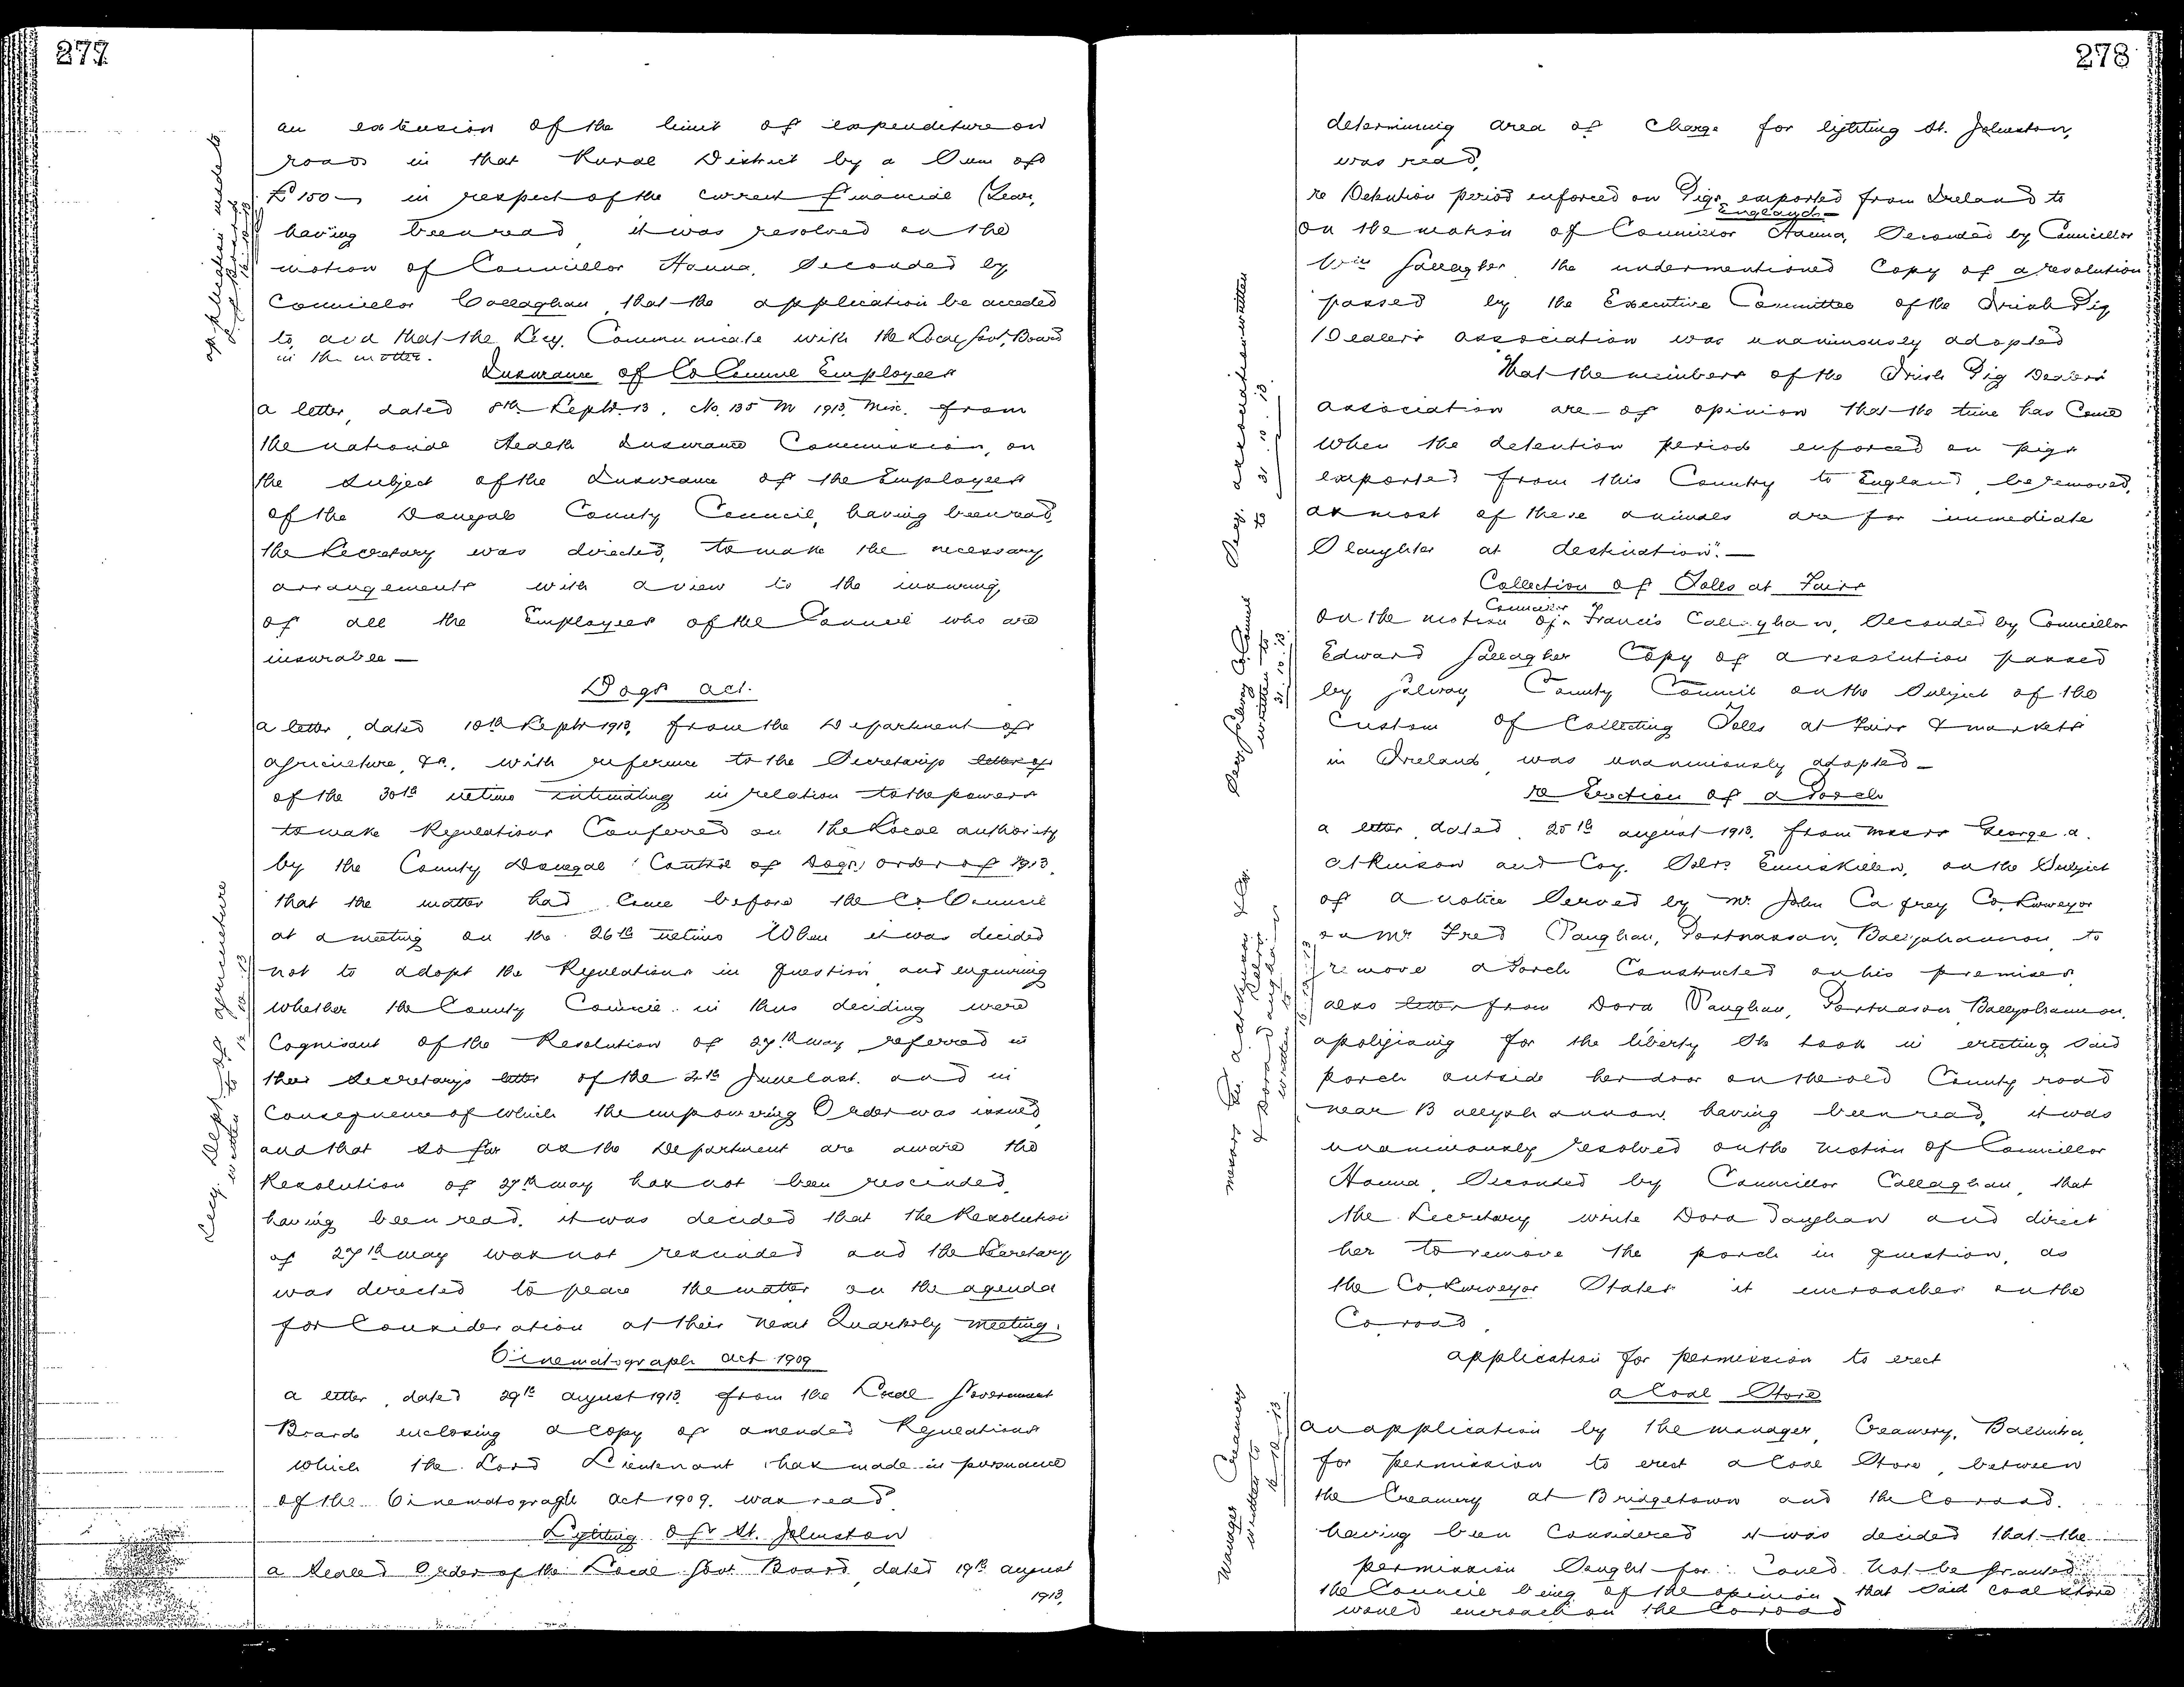 277
an extension of the limit of expenditure on
roads in that Rural District by a Sum of
£150 — in respect of the current financial Year,
having been read, it was resolved on the
motion of Councillor Hanna, Seconded by
Councillor Callaghan, that the application be acceded
to, and that the Secy. Communicate with the Local Govt. Board
in the matter.
Insurance of Co Council Employees
a letter, dated 8th Septr. 13, No. 135 M 1913, Misc. from
the national Health Insurance Commission, on
the subject of the Insurance of the Employees
of the Donegal County Council, having been read,
the Secretary was directed, to make the necessary
arrangements with a view to the insuring
of all the Employees of the Council who are
insurable —
Dogs act.
a letter, dated 10th Septr 1913, from the Department of
agriculture, &c., with reference to the Secretarys letter of
of the 30th ultimo intimating in relation to the powers
to make Regulations Conferred on the Local authority
by the County Donegal (Control of Dogs) order of 1913,
that the matter had come before the Co Council
at a meeting on the 26th ultimo When it was decided
not to adopt the Regulations in question and enquiring
whether the County Council in thus deciding were
Cognisant of the Resolution of 27th may referred in
their Secretarys letter of the 4th June last. and in
Consequence of which the empowering Order was issued,
and that so far as the Department are aware the
Resolution of 27th may has not been rescinded,
having been read, it was decided that the Resolution
of 27th may was not rescinded and the Secretary
was directed to place the matter on the agenda
for Consideration at their next Quarterly meeting.
Cinematograph act 1909
a letter, dated 29th august 1913, from the Local Government
Board enclosing a copy of amended Regulations
which the Lord Lieutenant has made in pursuance
of the Cinematograph act 1909. was read
Lighting of St. Johnston
a Sealed Order of the Local Govt Board, dated 19th august
1913,
application made to
Secy. Dept of agriculture
written to
278
determining area of Charge for lighting St. Johnston,
was read,
re Detention period enforced on Pigs exported from Ireland to
England —
on the motion of Councillor Hanna, Seconded by Councillor
Wm Gallagher, the undermentioned Copy of a resolution
passed by the Executive Committee of the Irish Pig
Dealers association was unanimously adopted
"That the members of the Irish Pig Dealers
association are of opinion that the time has Come
When the detention period enforced on pigs
exported from this Country to England, be removed,
as most of these animals are for immediate
Slaughter at destination". —
Collection of Tolls at Fairs
On the motion of Councillor Francis Callaghan, Seconded by Councillor
Edward Gallagher Copy of a resolution passed
by Galway County Council on the Subject of the
Custom of Collecting Tolls at Fairs & markets
in Ireland, was unanimously adopted —
re Erection of a Porch
a letter, dated, 25th august 1913, from messrs George a.
atkinson and Coy. Solrs Enniskillen, on the Subject
of a notice Served by Mr. John Cafrey Co. Surveyor
on Mr Fred Vaughan, Portnasson, Ballyshannon, to
remove a Porch Constructed on his premises,
also letter from Dora Vaughan, Portnason Ballyshannon,
apoligising for the liberty She took in erecting said
porch outside her door on the old County road
near Ballyshannon, having been read, it was
unanimously resolved on the motion of Councillor
Hanna, Seconded by Councillor Callaghan, that
the Secretary write Dora Vaughan and direct
her to remove the porch in question, as
the Co. Surveyor States it encroaches on the
Co. road.
application for permission to erect
a Coal Store
an application by the manager, Creamery, Ballintra,
for permission to erect a Coal Store, between
the Creamery at Bridgetown and the Co road.
having been Considered it was decided that the
permission Sought for Could not be Granted
the Council being of the opinion that said coal store
would encroach on the Co road
Secy. association written
to 31.10.13
Secy Galway Co. Council
written to
31.10.13
messrs G. a atkinson & Co.
& Dora Vaughan
written to
Manager Creamery
written to